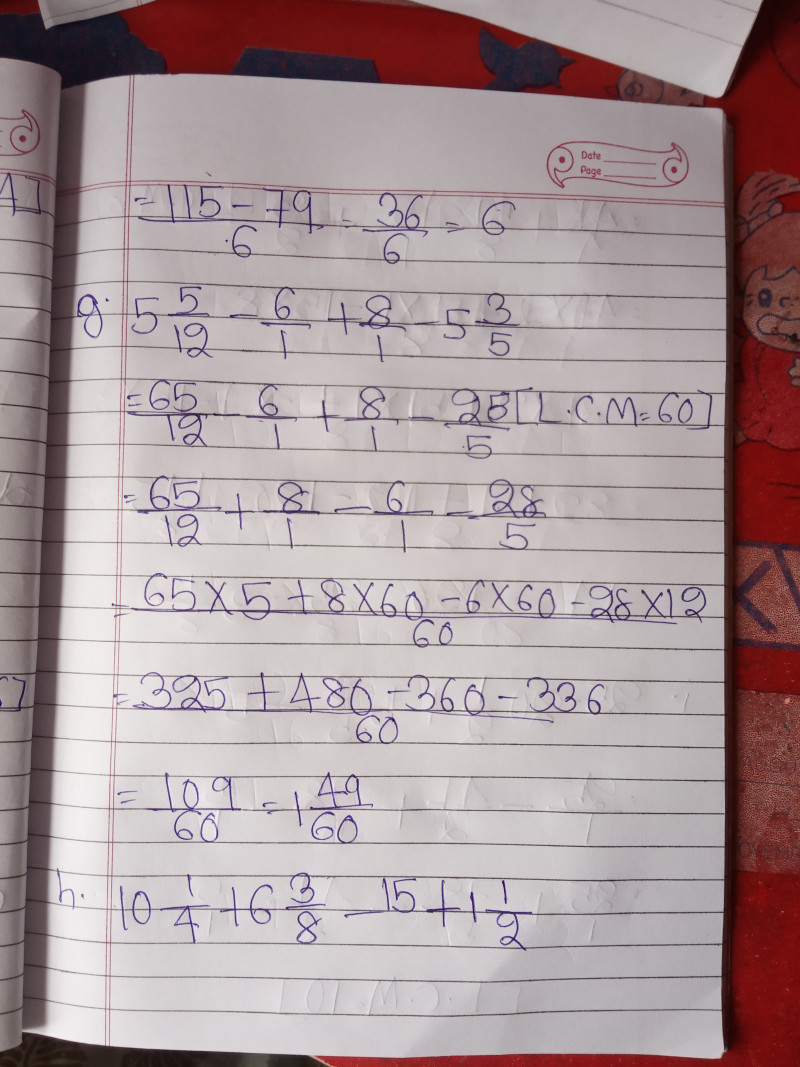 Date
Page
4]
= 115 - 79 / 6 = 36/6 = 6
g. 5 5/12 - 6/1 + 8/1 - 5 3/5
= 65/12 - 6/1 + 8/1 - 28/5 [L.C.M = 60]
= 65/12 + 8/1 - 6/1 - 28/5
= 65 × 5 + 8 × 60 - 6 × 60 - 28 × 12 / 60
= 325 + 480 - 360 - 336 / 60
= 109/60 = 1 49/60
h. 10 1/4 + 6 3/8 - 15 + 1 1/2